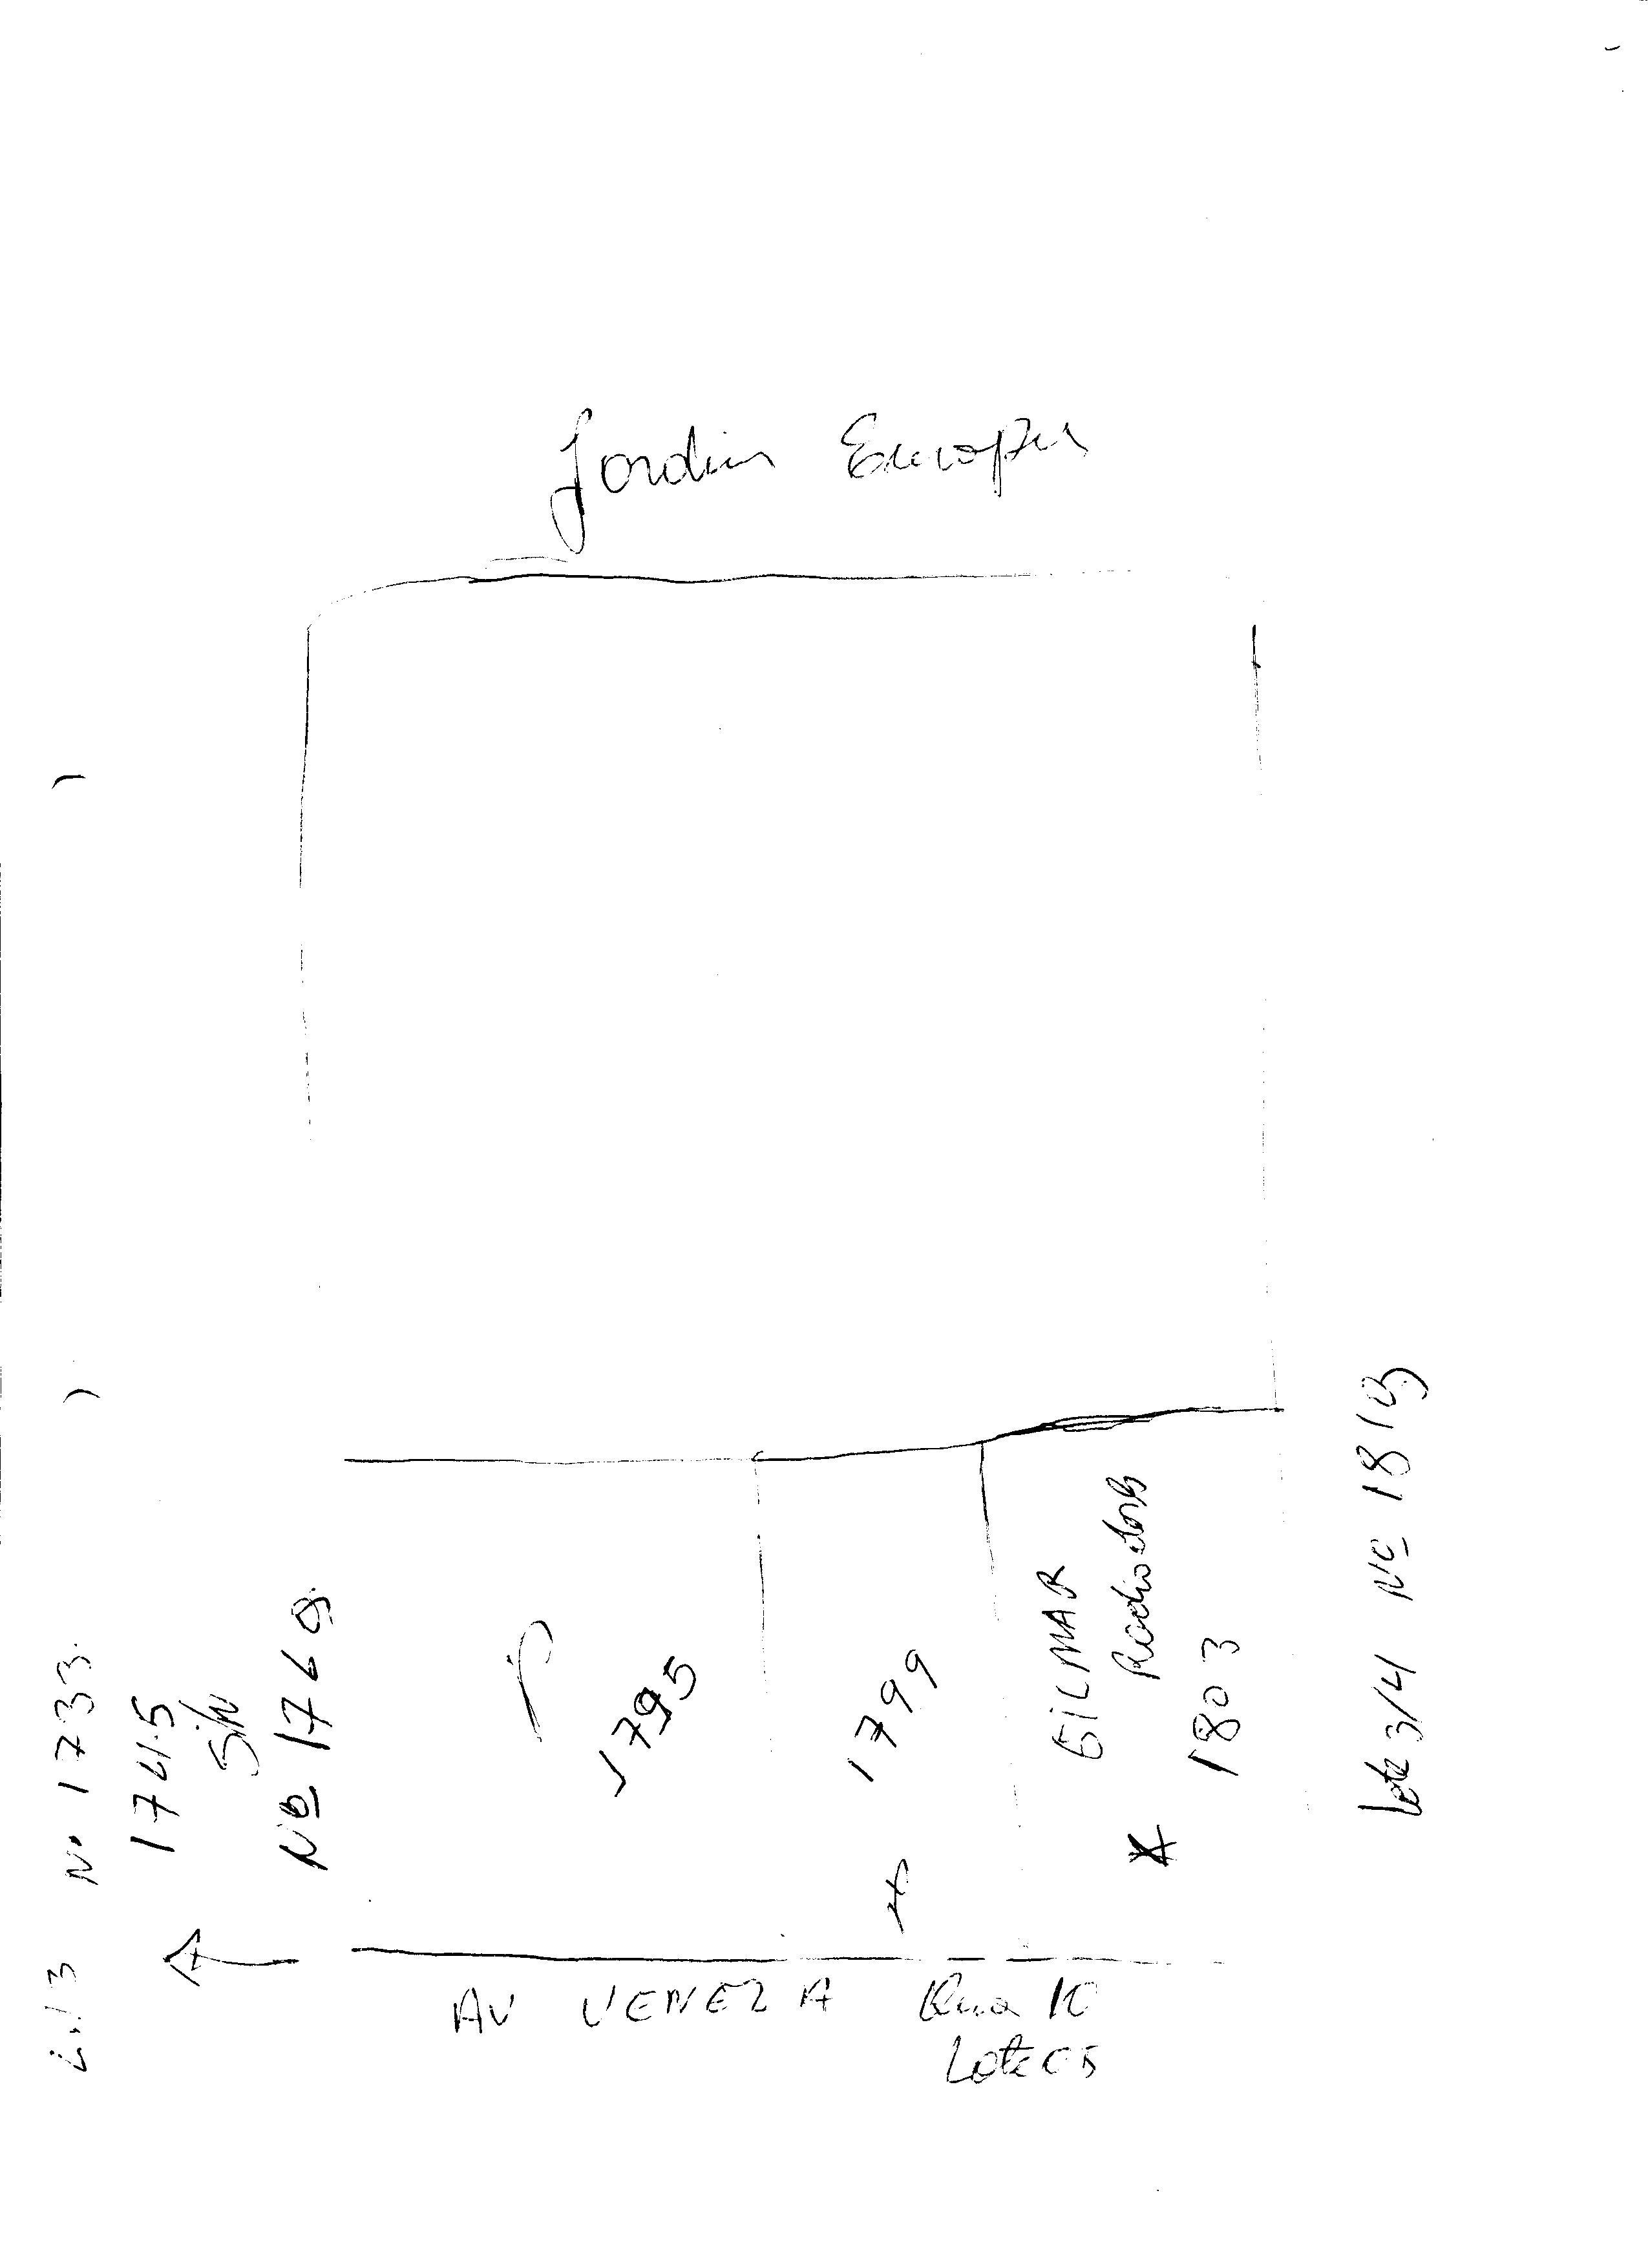 Jardim Europa
Nº 1733.
1745
S/N
Nº 1769.
1795
1799
GILMAR
Radiadores
1803
Lote 3/4 Nº 1813
AV VENEZA Qua 10
Lote 05